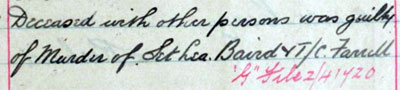 Deceased with other persons was guilty
of Murder of Sct Lea. Baird & T/C. Farrell
"G" File 2/41920